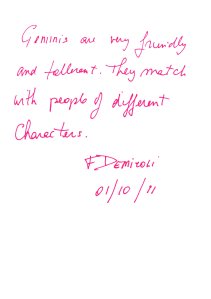 Geminis are very friendly
and tollerent. They match
with people of different
Characters.
F Demiroli
01/10/11